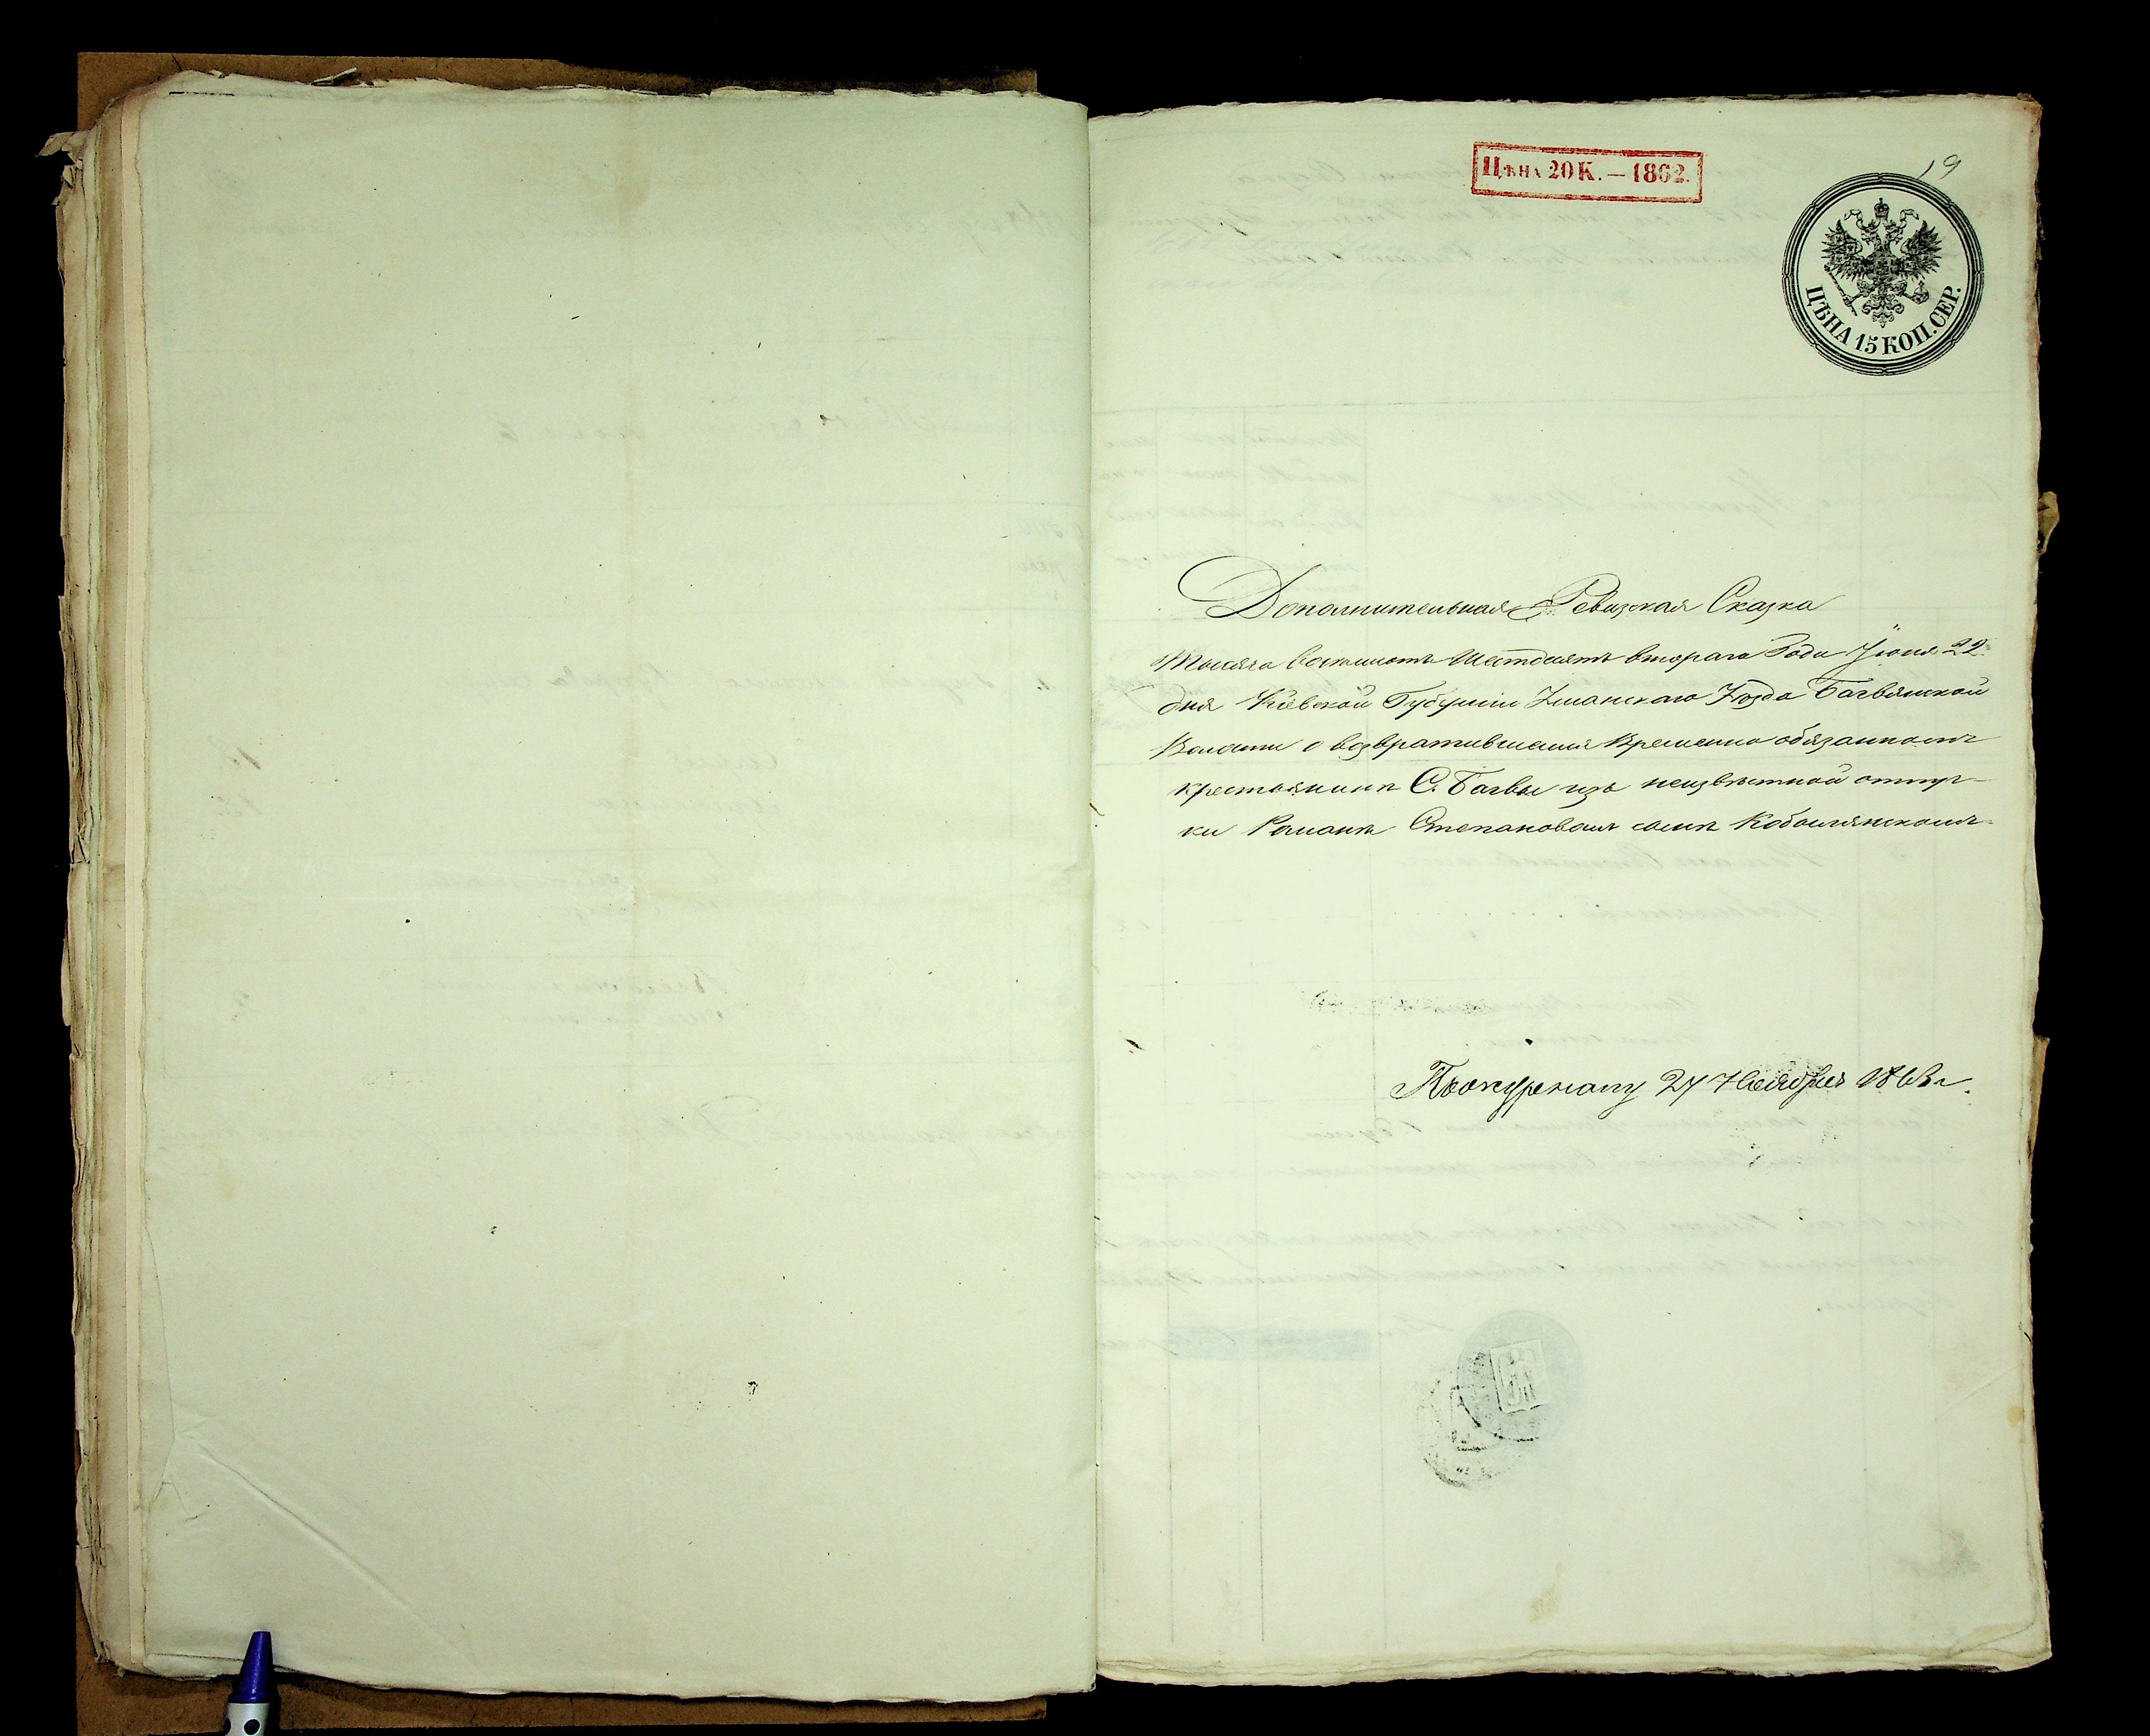 Цѣна 20 К. — 1862.
19
ЦѢНА 15 КОП. СЕР.
Дополнительная Ревизская Сказка
Тысяча восемьсотъ Шестдесятъ втораго Года Іюня 22
дня Кіевской Губерніи Уманскаго Уѣзда Багвянской
Волости о возвратившемся временно обязанномъ
крестьянинѣ С. Багвы изъ неизвѣстной отлуч-
ки Романѣ Степановомъ сынѣ Кобылянскомъ
27 Ноября 1863 г.